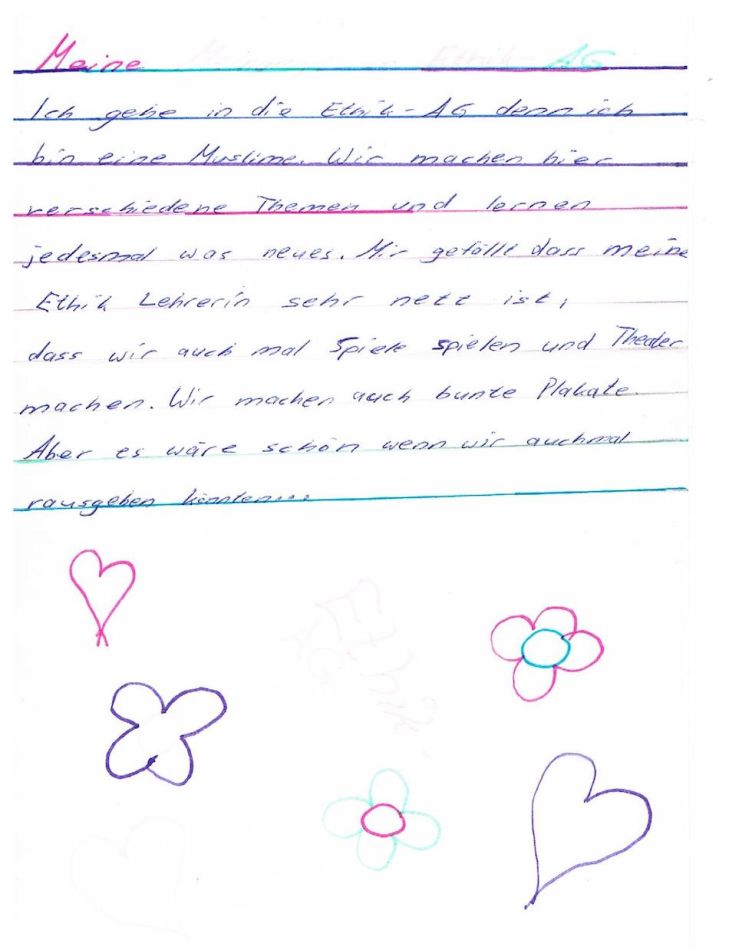 Meine Meinung zur Ethik AG
Ich gehe in die Ethik-AG denn ich
bin eine Muslime. Wir machen hier
verschiedene Themen und lernen
jedesmal was neues. Mir gefällt dass meine
Ethik Lehrerin sehr nett ist,
dass wir auch mal Spiele spielen und Theater
machen. Wir machen auch bunte Plakate.
Aber es wäre schön wenn wir auchmal
rausgehen könnten...
Ethik